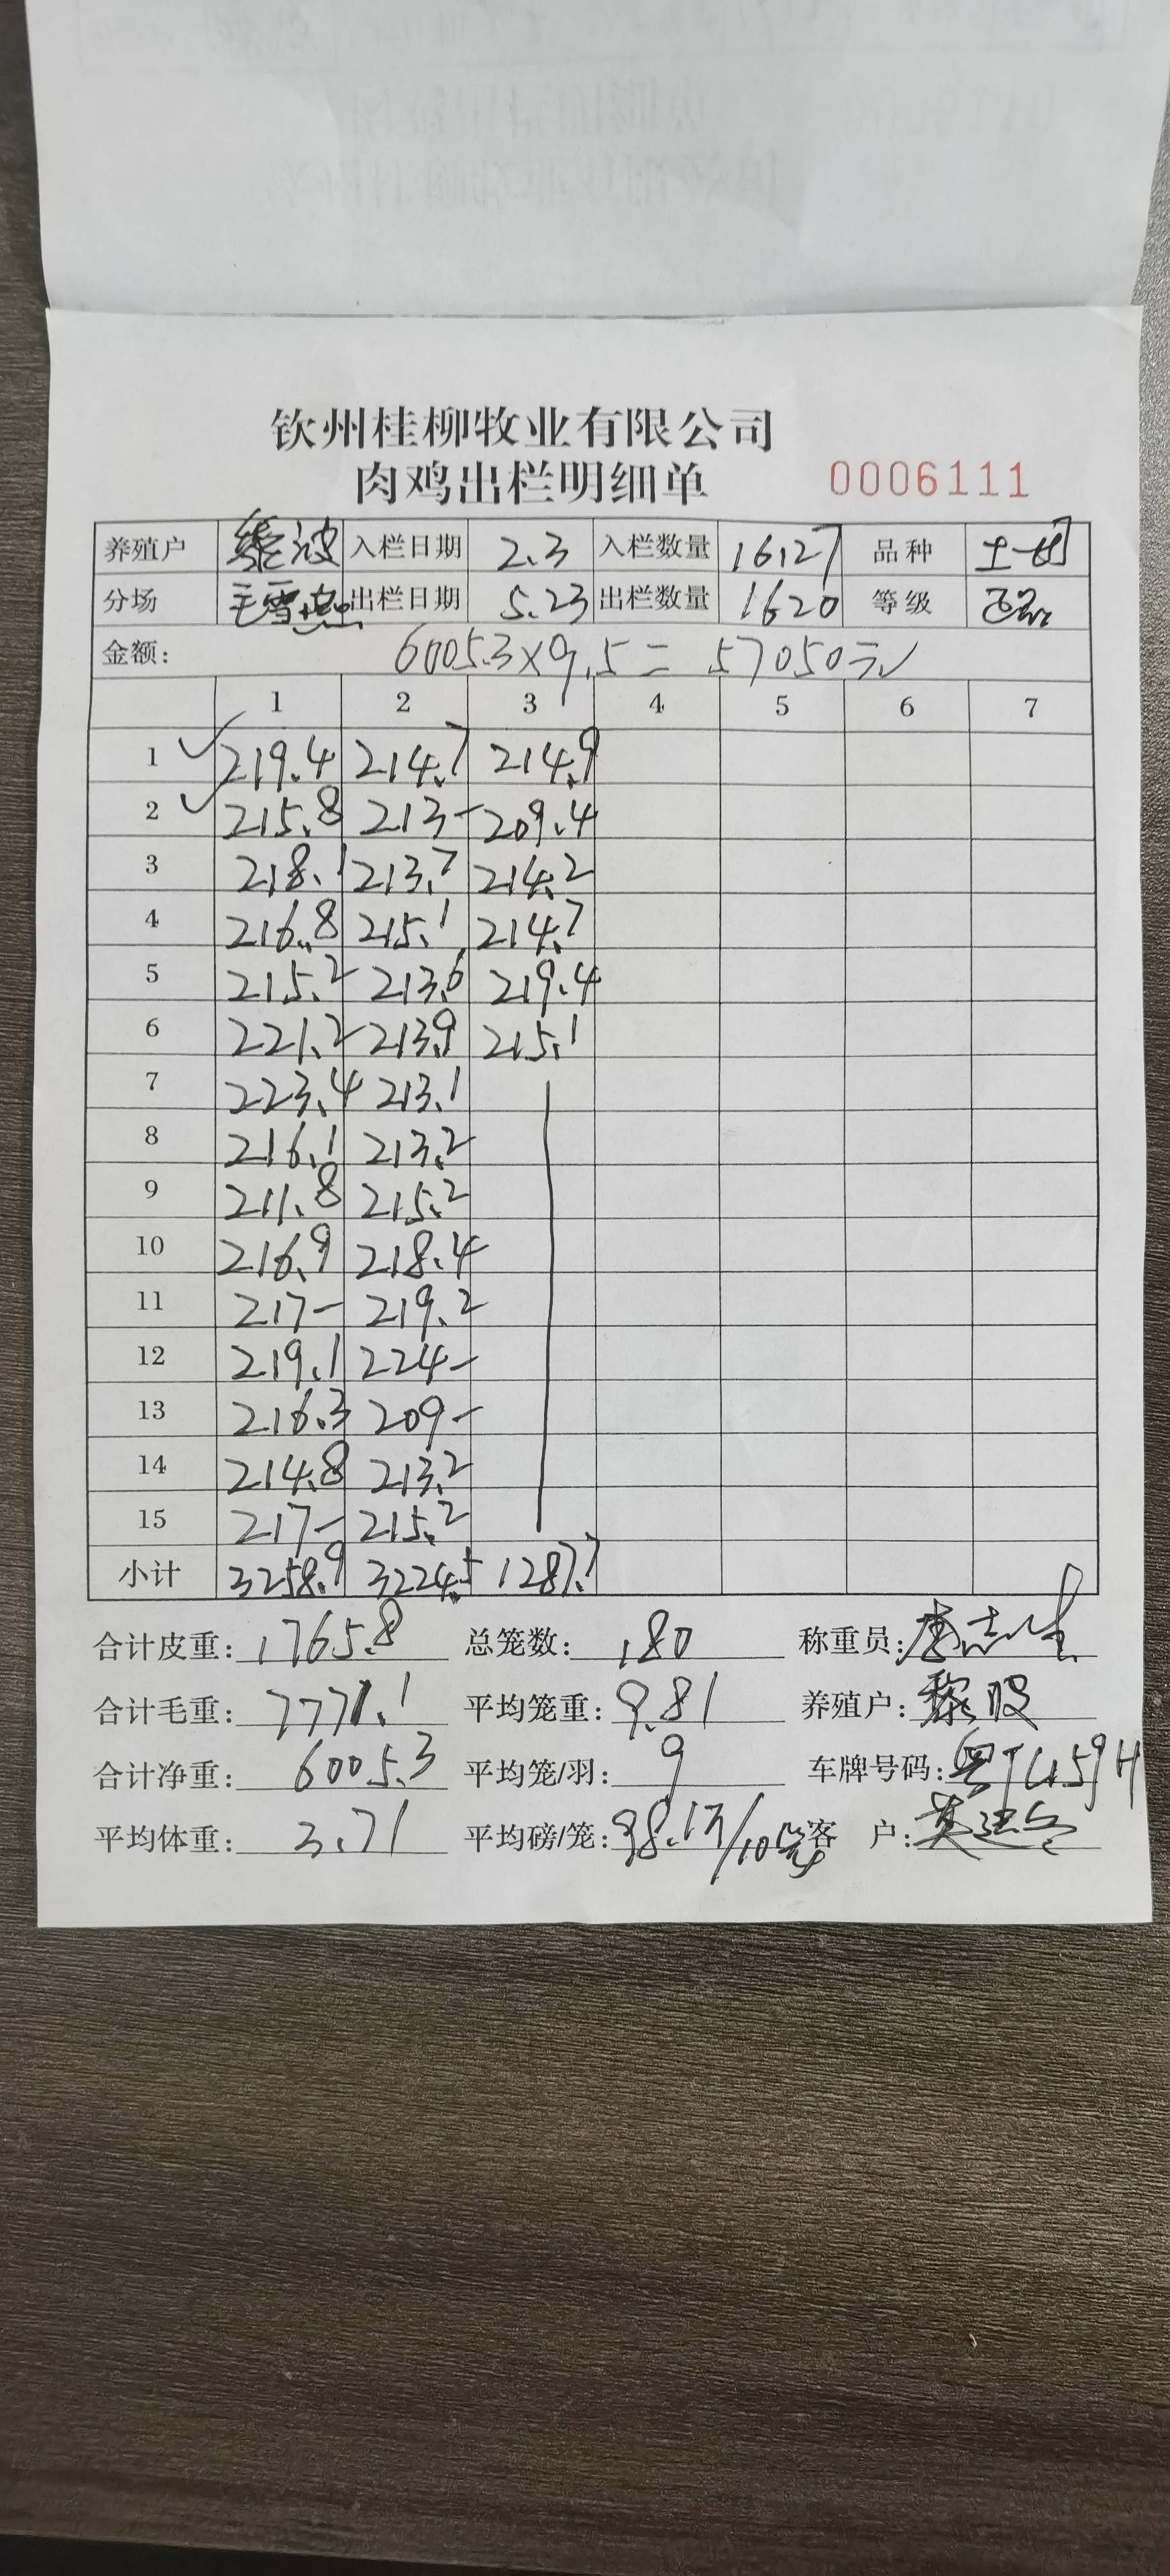 钦州桂柳牧业有限公司
肉鸡出栏明细单 0006111
养殖户 黎波 入栏日期 2.3 入栏数量 1627 品种 土一
分场 毛雪 出栏日期 5.23 出栏数量 1620 等级
金额: 6005.3×9.5=57050元
1 2 3 4 5 6 7
1 219.4 214.7 214.9
2 215.8 213- 209.4
3 218.1 213.7 214.2
4 216.8 215.1 214.7
5 215.2 213.6 219.4
6 221.2 213.9 215.1
7 223.4 213.1
8 216.1 213.2
9 211.8 215.2
10 216.9 218.4
11 217- 219.2
12 219.1 224-
13 216.3 209-
14 214.8 213.2
15 217- 215.2
小计 3258.9 3224.5 1287.7
合计皮重: 1765.8 总笼数: 180 称重员: 志
合计毛重: 7771.1 平均笼重: 9.81 养殖户: 黎波
合计净重: 6005.3 平均笼/羽: 9 车牌号码: 粤
平均体重: 3.71 平均磅/笼: 98.1斤/10笼 客 户: 莫